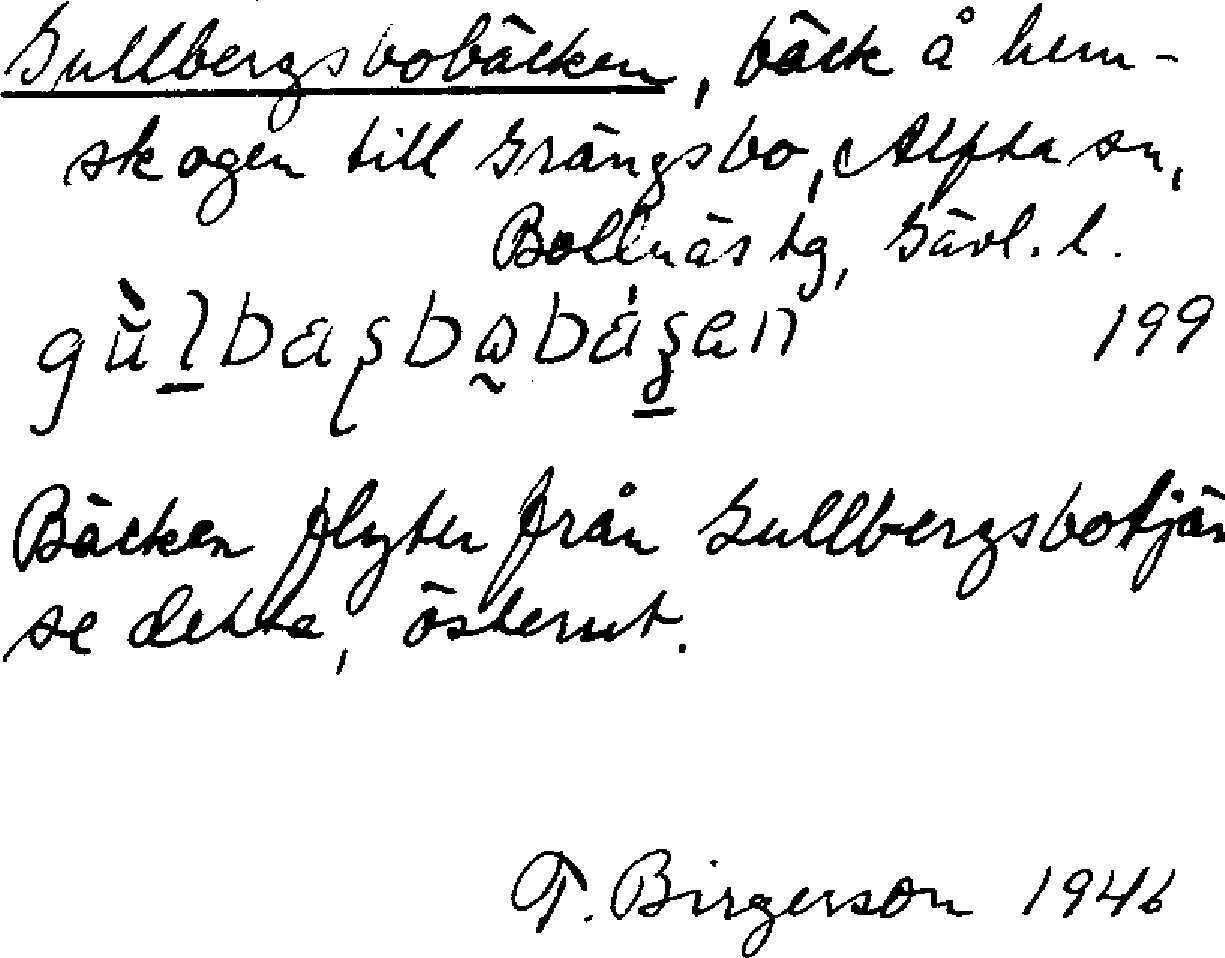 Gullbergsbobäcken, bäck å hem-
skogen till Grängsbo, Alfta sn,
Bollnäs tg, Gävl. l.
199
Bäcken flyter från Gullbergsbotjär
se detta, österut.
T. Birgerson 1946